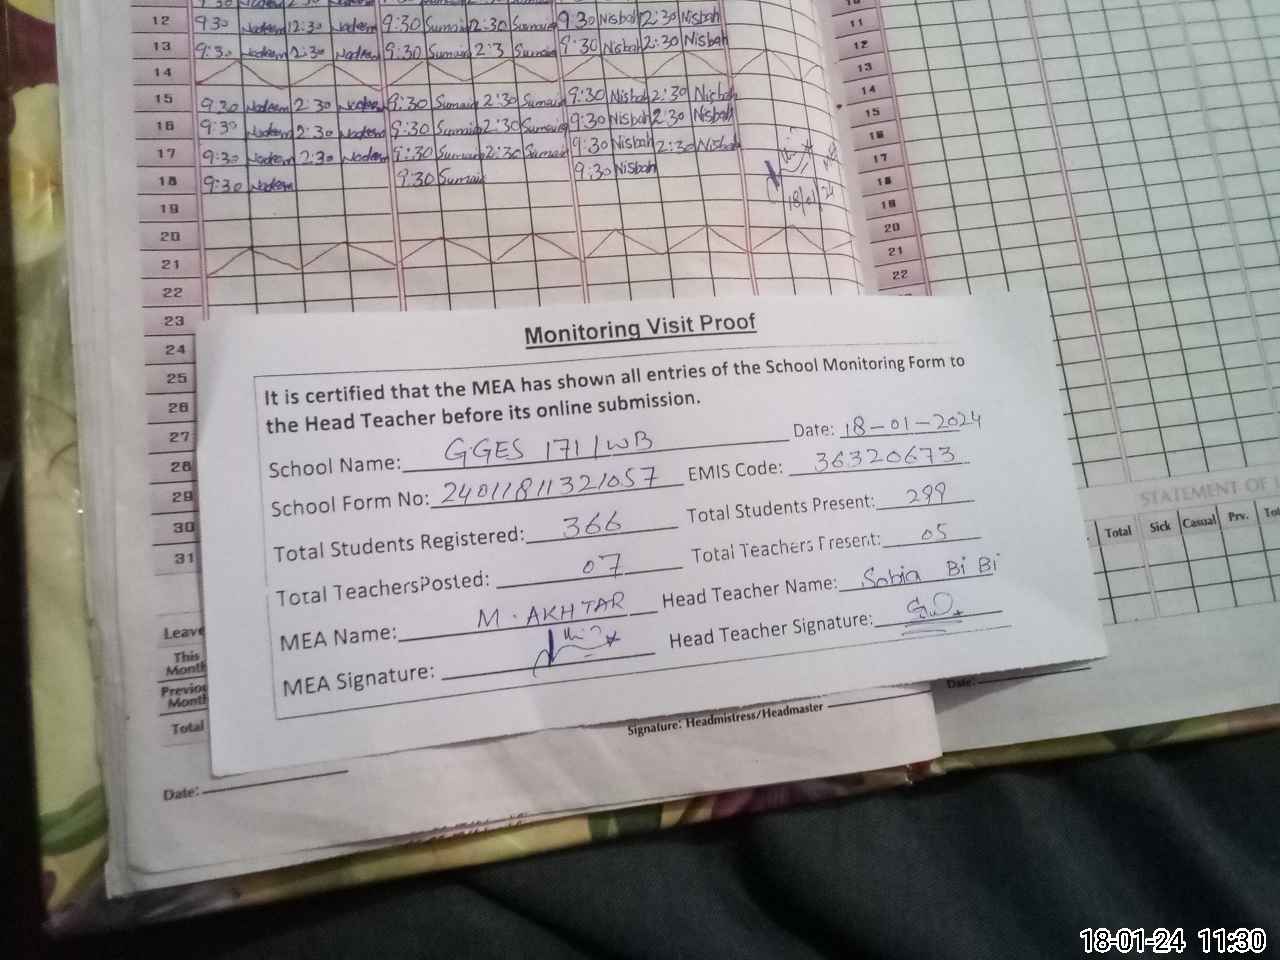 12 9:30 Nadeem 2:30 Nadeem 9:30 Sumaira 2:30 Sumaira 9:30 Nisbah 2:30 Nisbah 11
13 9:30 Nadeem 2:30 Nadeem 9:30 Sumaira 2:3 Sumaira 9:30 Nisbah 2:30 Nisbah 12
14 13
15 9:30 Nadeem 2:30 Nadeem 9:30 Sumaira 2:30 Sumaira 9:30 Nisbah 2:30 Nisbah 14
16 9:30 Nadeem 2:30 Nadeem 9:30 Sumaira 2:30 Sumaira 9:30 Nisbah 2:30 Nisbah 15
17 9:30 Nadeem 2:30 Nadeem 9:30 Sumaira 2:30 Sumaira 9:30 Nisbah 2:30 Nisbah 16
18 9:30 Nadeem 9:30 Sumaira 9:30 Nisbah 17
18
19 18/01/24 19
20 20
21 21
22 22
23
24
25
26
27
28
29
30
31
Monitoring Visit Proof
It is certified that the MEA has shown all entries of the School Monitoring Form to
the Head Teacher before its online submission.
School Name: GGES 171/WB Date: 18-01-2024
School Form No: 24011811321057 EMIS Code: 36320673
Total Students Registered: 366 Total Students Present: 299
Total TeachersPosted: 07 Total Teachers Present: 05
MEA Name: M. AKHTAR Head Teacher Name: Sobia Bi Bi
MEA Signature: Head Teacher Signature:
STATEMENT OF
Total Sick Casual Prv.
Leave
This
Month
Previous
Month
Total
Signature: Headmistress/Headmaster
Date:
Date:
18-01-24 11:30